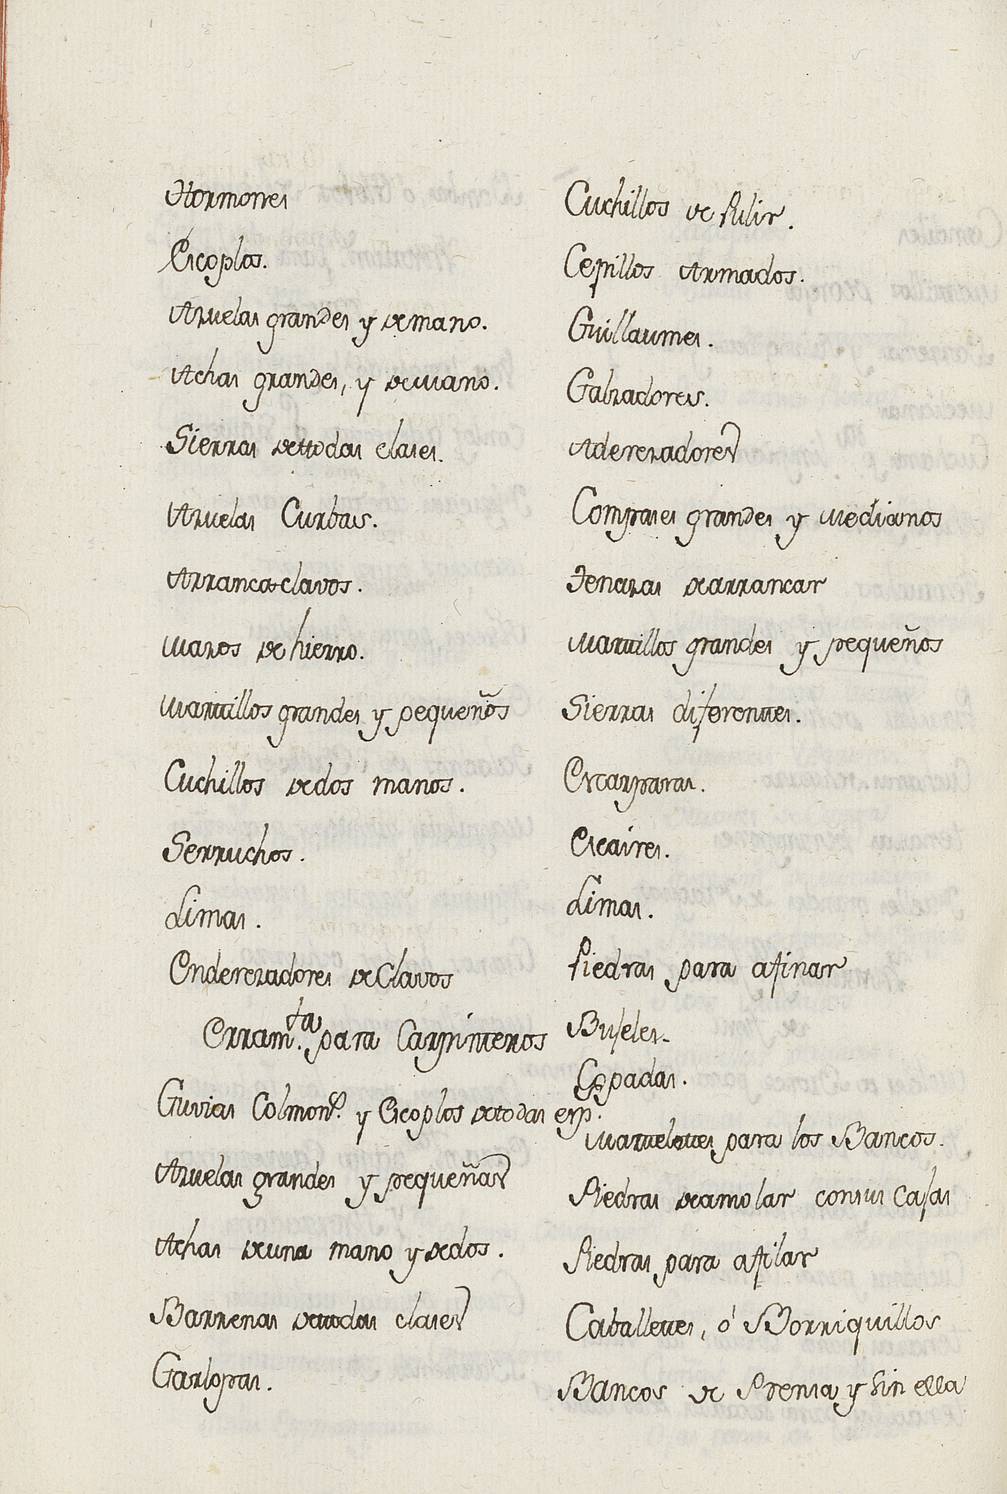 Hormones
Escoplos.
Azuelas grandes y de mano.
Achas grandes, y de mano.
Sierras de ttodas clases.
Azuelas Curbas.
Arranca-clavos.
Mazos de hierro.
Marttillos grandes y pequeños
Cuchillos de dos manos.
Serruchos.
Limas.
Enderezadores de Clavos
Erram.ta para Carpinteros
Guvias Colmon.s y Escoplos de todas esp.s
Azuelas grandes y pequeñas
Achas de una mano y de dos.
Barrenas de ttodas clases
Garlopas.
Cuchillos de Pulir.
Cepillos Armados.
Guillaumes.
Galzadores.
Aderezadores
Compases grandes y medianos
Tenazas de arrancar
Marttillos grandes y pequeños
Sierras diferenttes.
Escarparas.
Escaires.
Limas.
Piedras para afinar
Bufeles.
Espadas.
para los Bancos.
Piedras de amolar con sus Cajas
Piedras para afilar
Caballettes, ó Borriquillos
Bancos de Prensa y sin ella